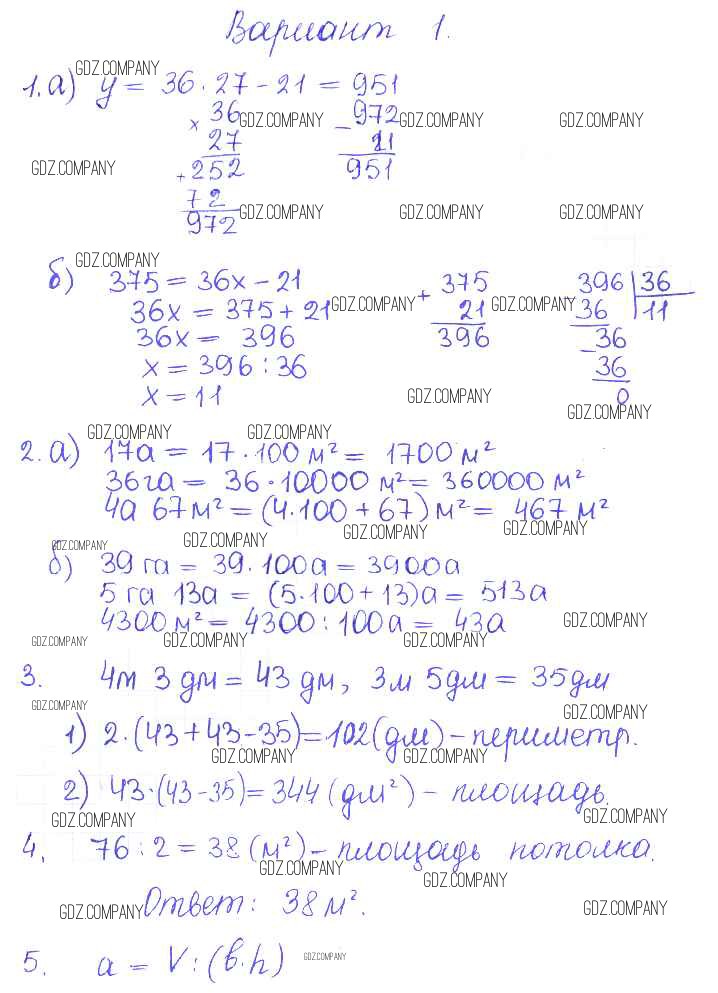 Вариант 1.
GDZ.COMPANY
1.а) y = 36 · 27 – 21 = 951
× 36 GDZ.COMPANY – 972 GDZ.COMPANY GDZ.COMPANY
27 21
GDZ.COMPANY + 252 951
72 GDZ.COMPANY GDZ.COMPANY GDZ.COMPANY
972
GDZ.COMPANY
б) 375 = 36x – 21 + 375 396 | 36
36x = 375 + 21 GDZ.COMPANY 21 GDZ.COMPANY 36 11
36x = 396 396 – 36
x = 396 : 36 36
x = 11 GDZ.COMPANY 0
GDZ.COMPANY
GDZ.COMPANY GDZ.COMPANY
2. а) 17а = 17 · 100 м² = 1700 м²
36га = 36 · 10000 м² = 360000 м²
4а 67 м² = (4·100 + 67) м² = 467 м²
GDZ.COMPANY GDZ.COMPANY GDZ.COMPANY GDZ.COMPANY
б) 39 га = 39 · 100а = 3900а
5 га 13а = (5·100 + 13)а = 513а
4300 м² = 4300 : 100а = 43а GDZ.COMPANY
GDZ.COMPANY GDZ.COMPANY GDZ.COMPANY
3. 4м 3 дм = 43 дм, 3м 5дм = 35дм
GDZ.COMPANY GDZ.COMPANY
1) 2·(43 + 43 – 35) = 102 (дм) – периметр.
GDZ.COMPANY GDZ.COMPANY
2) 43·(43 – 35) = 344 (дм²) – площадь.
GDZ.COMPANY GDZ.COMPANY
4. 76 : 2 = 38 (м²) – площадь потолка.
GDZ.COMPANY GDZ.COMPANY
GDZ.COMPANY Ответ: 38 м². GDZ.COMPANY
5. a = V : (b·h) GDZ.COMPANY